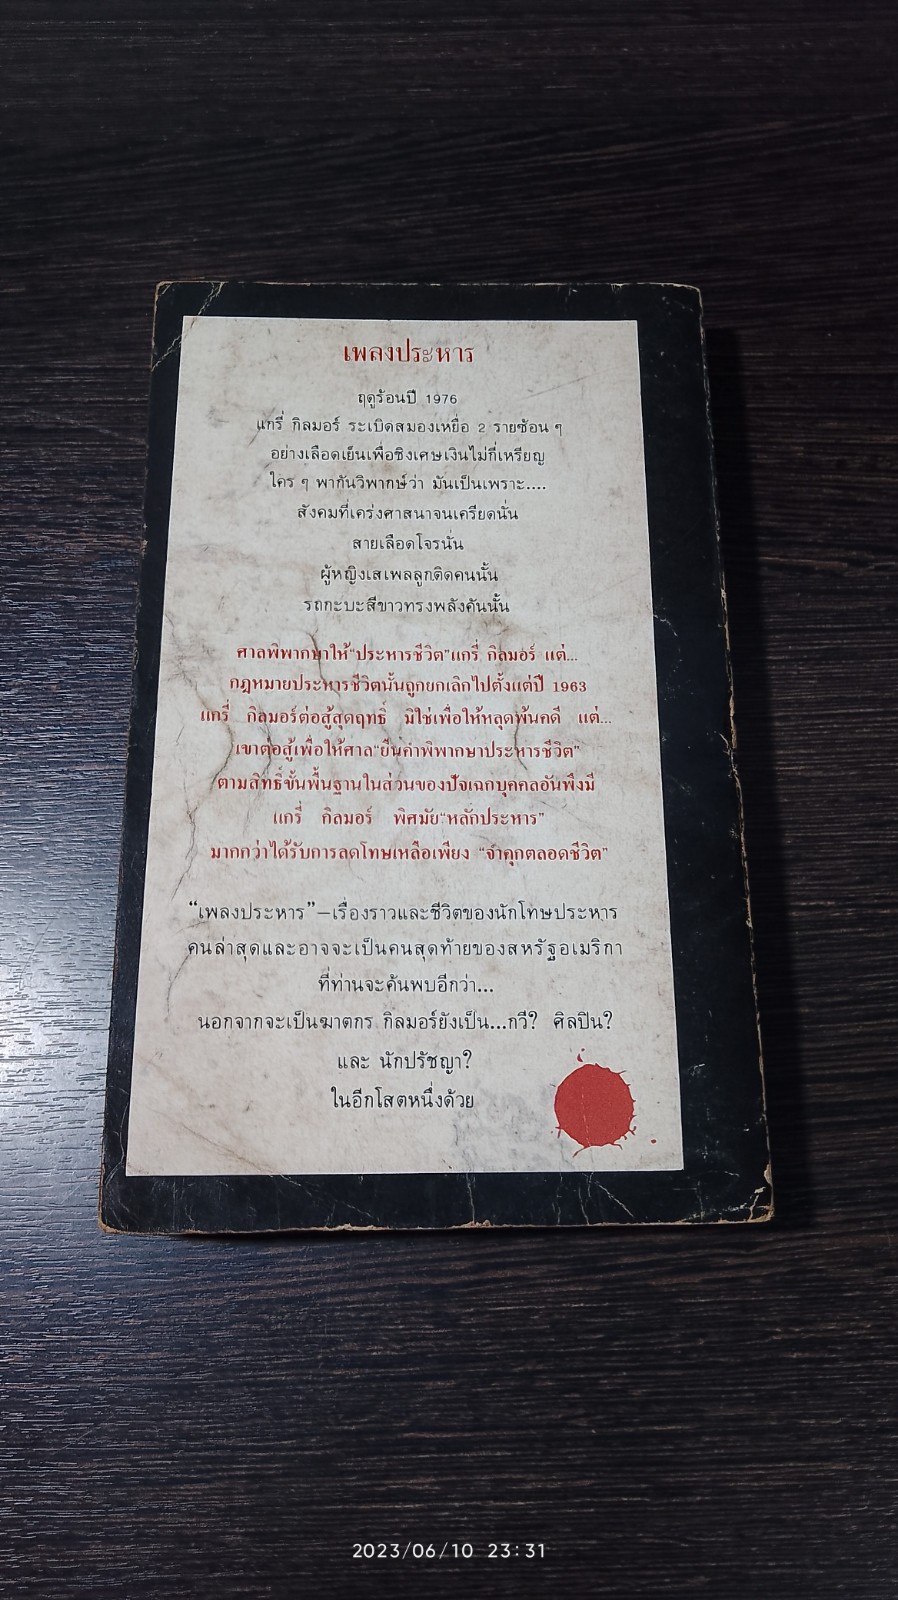 เพลงประหาร
ฤดูร้อนปี 1976
แกรี่ กิลมอร์ ระเบิดสมองเหยื่อ 2 รายซ้อน ๆ
อย่างเลือดเย็นเพื่อชิงเศษเงินไม่กี่เหรียญ
ใคร ๆ พากันวิพากษ์ว่า มันเป็นเพราะ....
สังคมที่เคร่งศาสนาจนเครียดนั่น
สายเลือดโจรนั่น
ผู้หญิงเสเพลลูกติดคนนั้น
รถกะบะสีขาวทรงพลังคันนั้น
ศาลพิพากษาให้“ประหารชีวิต”แกรี่ กิลมอร์ แต่...
กฎหมายประหารชีวิตนั้นถูกยกเลิกไปตั้งแต่ปี 1963
แกรี่ กิลมอร์ต่อสู้สุดฤทธิ์ มิใช่เพื่อให้หลุดพ้นคดี แต่...
เขาต่อสู้เพื่อให้ศาล“ยืนคำพิพากษาประหารชีวิต”
ตามสิทธิ์ขั้นพื้นฐานในส่วนของปัจเฉกบุคคลอันพึงมี
แกรี่ กิลมอร์ พิศมัย“หลักประหาร”
มากกว่าได้รับการลดโทษเหลือเพียง “จำคุกตลอดชีวิต”
“เพลงประหาร”–เรื่องราวและชีวิตของนักโทษประหาร
คนล่าสุดและอาจจะเป็นคนสุดท้ายของสหรัฐอเมริกา
ที่ท่านจะค้นพบอีกว่า...
นอกจากจะเป็นฆาตกร กิลมอร์ยังเป็น...กวี? ศิลปิน?
และ นักปรัชญา?
ในอีกโสตหนึ่งด้วย
2023/06/10 23:31